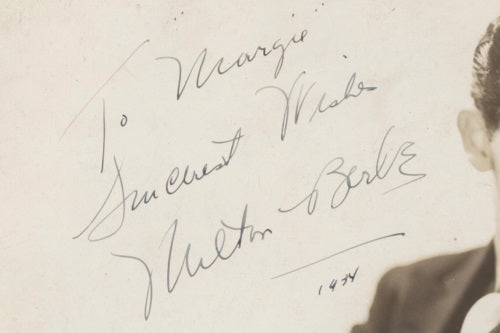 To "Margie"
Sincerest Wishes
Milton Berle
1934